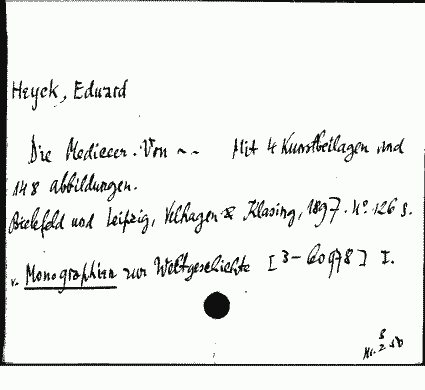 Heyck, Eduard
Die Mediceer. Von ~~ Mit 4 Kunstbeilagen und
148 abbildungen.
Bielefeld und Leipzig, Velhagen & Klasing, 1897. 4º. 126 S.
v. Monographien zur Weltgeschichte [3-60978] I.